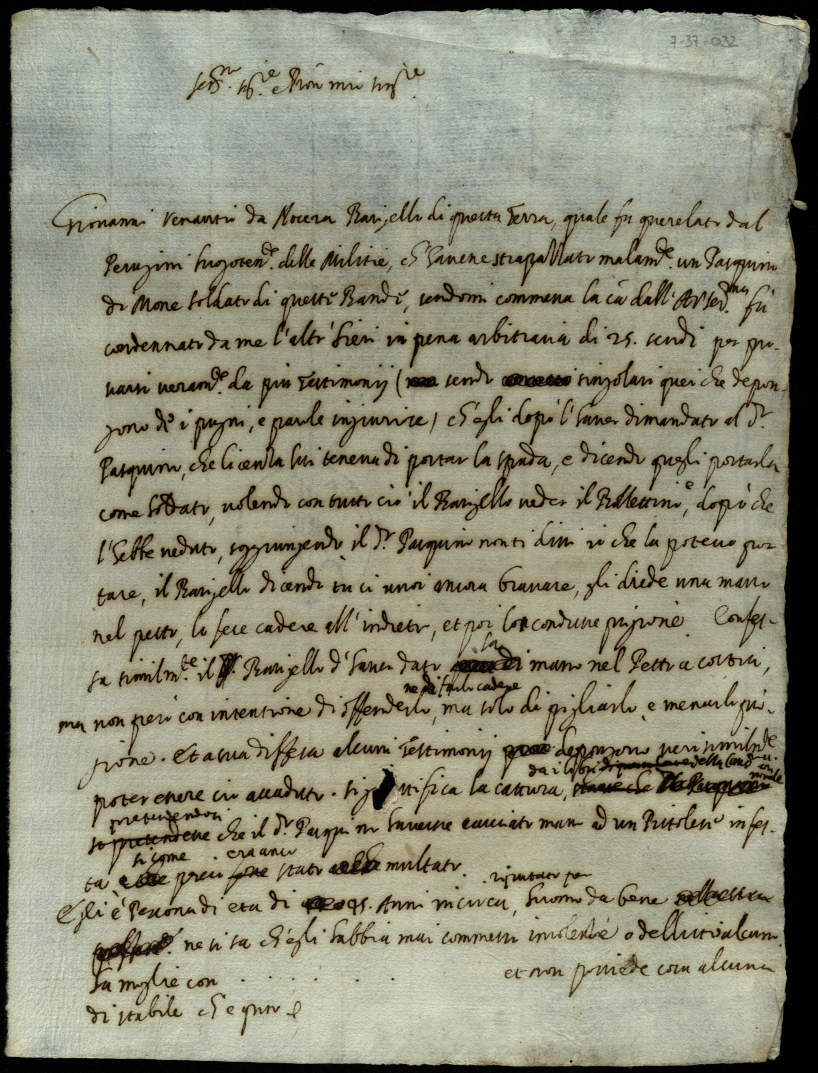 7-37-032
Giovanni Venantii da Nocera Barigello di questa Terra, quale fu querelato dal
Perugini luogoten.te delle Militie, ch'havesse strapazzato malam.te un Pasquino
di Mone soldato di queste Bande, sendomi commessa la ca dall'A.V. Ser.ma fu
condennato da me l'altr'hieri in pena arbitraria di 25. scudi per pro-
varsi veram.te da più Testimonij ( sendo singolari quei che depon-
gono de i pugni, e parole ingiuriose) ch'egli dopò l'haver dimandato al d.o
Pasquino, che licenza lui teneva di portar la spada, e dicendo quegli portarla
come soldato, volendo con tutto ciò il Barigello veder il Bollettino, dopò che
l'hebbe veduto, soggiungendo il d.o Pasquino non ti dissi io che la potevo por
tare, il Barigello dicendo tu ci vuoi ancora bravare, gli diede una mano
nel petto, lo fece cadere all'indietro, et poi lo condusse prigione Confes-
sa similm.te il Barigello d'haver dato la mano nel Petto a costui,
ne di farlo cadere
ma non però con intentione di offenderlo, ma solo di pigliarlo, e menarlo pri-
gione. Et a sua difesa alcuni Testimonij depongono verisimilm.te
da i libri
poter essere ciò accaduto. si giustifica la cattura,
pretendendosi
che il d.o Pasquino havesse cacciato mano ad un Pistolese in fes-
si come era anco
ta però stato multato
riputato per
Egli è Persona di eta di 45. Anni incirca, huomo da bene
ne si sa ch'egli habbia mai commessi insolenze o delitti alcuni
ha moglie con . . . . . et non possiede cosa alcuna
di stabile ch'è q.to